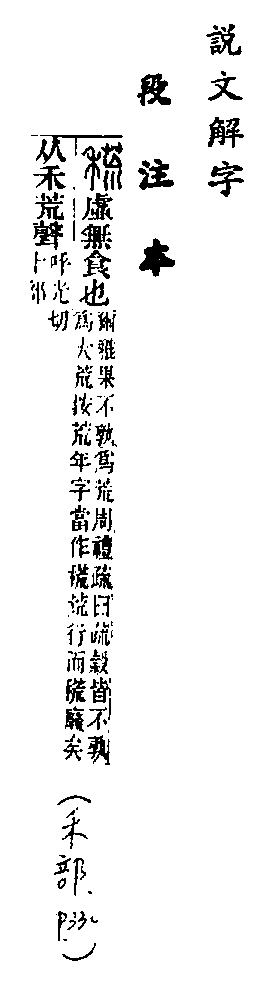 説文解字
段注本
虛無食也爾雅果不孰爲荒周禮疏曰疏穀皆不孰
爲大荒按荒年字當作𥠢荒行而𥠢廢矣
从禾荒聲呼光切
十部
(禾部. P.33